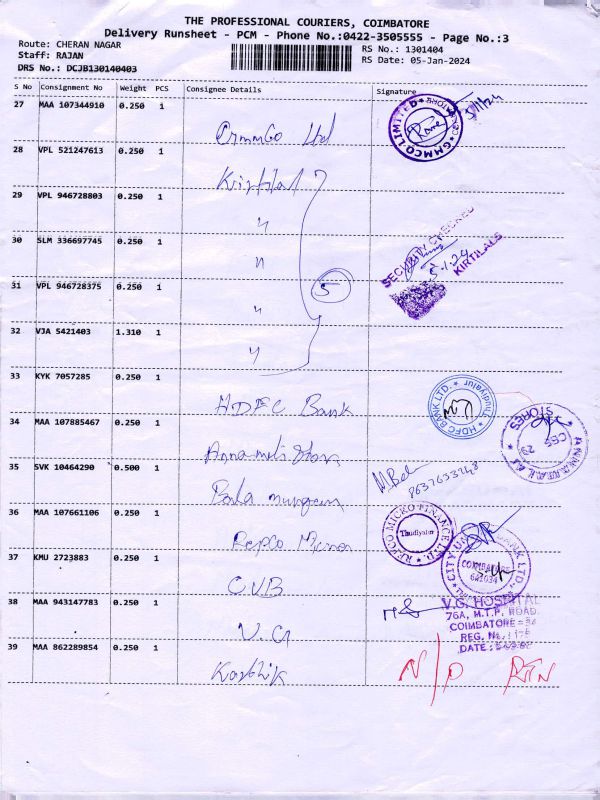 THE PROFESSIONAL COURIERS, COIMBATORE
Delivery Runsheet - PCM - Phone No.:0422-3505555 - Page No.:3
Route: CHERAN NAGAR
RS No.: 1301404
Staff: RAJAN
RS Date: 05-Jan-2024
DRS No.: DCJB130140403
S No Consignment No Weight PCS Consignee Details Signature
27 MAA 107344910 0.250 1
GMMCO LIMITED
Gmmco Ltd
28 VPL 521247613 0.250 1
Kirtilal
29 VPL 946728803 0.250 1
"
30 SLM 336697745 0.250 1
"
SECURITY CHECKED
5-1-24
KIRTILALS
31 VPL 946728375 0.250 1
5
"
32 VJA 5421403 1.310 1
"
33 KYK 7057285 0.250 1
HDFC Bank
HDFC BANK LTD. Thudiyalur
34 MAA 107885467 0.250 1
Annamalai Stores
ANNAMALAI STORES
CBS 29
35 SVK 10464290 0.500 1
Bala murugan
8637633248
36 MAA 107661106 0.250 1
Repco Micro
REPCO MICRO FINANCE LTD.
Thudiyalur
37 KMU 2723883 0.250 1
CUB
CITY UNION BANK LTD.
COIMBATORE
641034
38 MAA 943147783 0.250 1
V.G
V.G. HOSPITAL
76A, M.T.P. ROAD
COIMBATORE - 34
REG. No.
DATE:
39 MAA 862289854 0.250 1
Karthik
N/P RTN